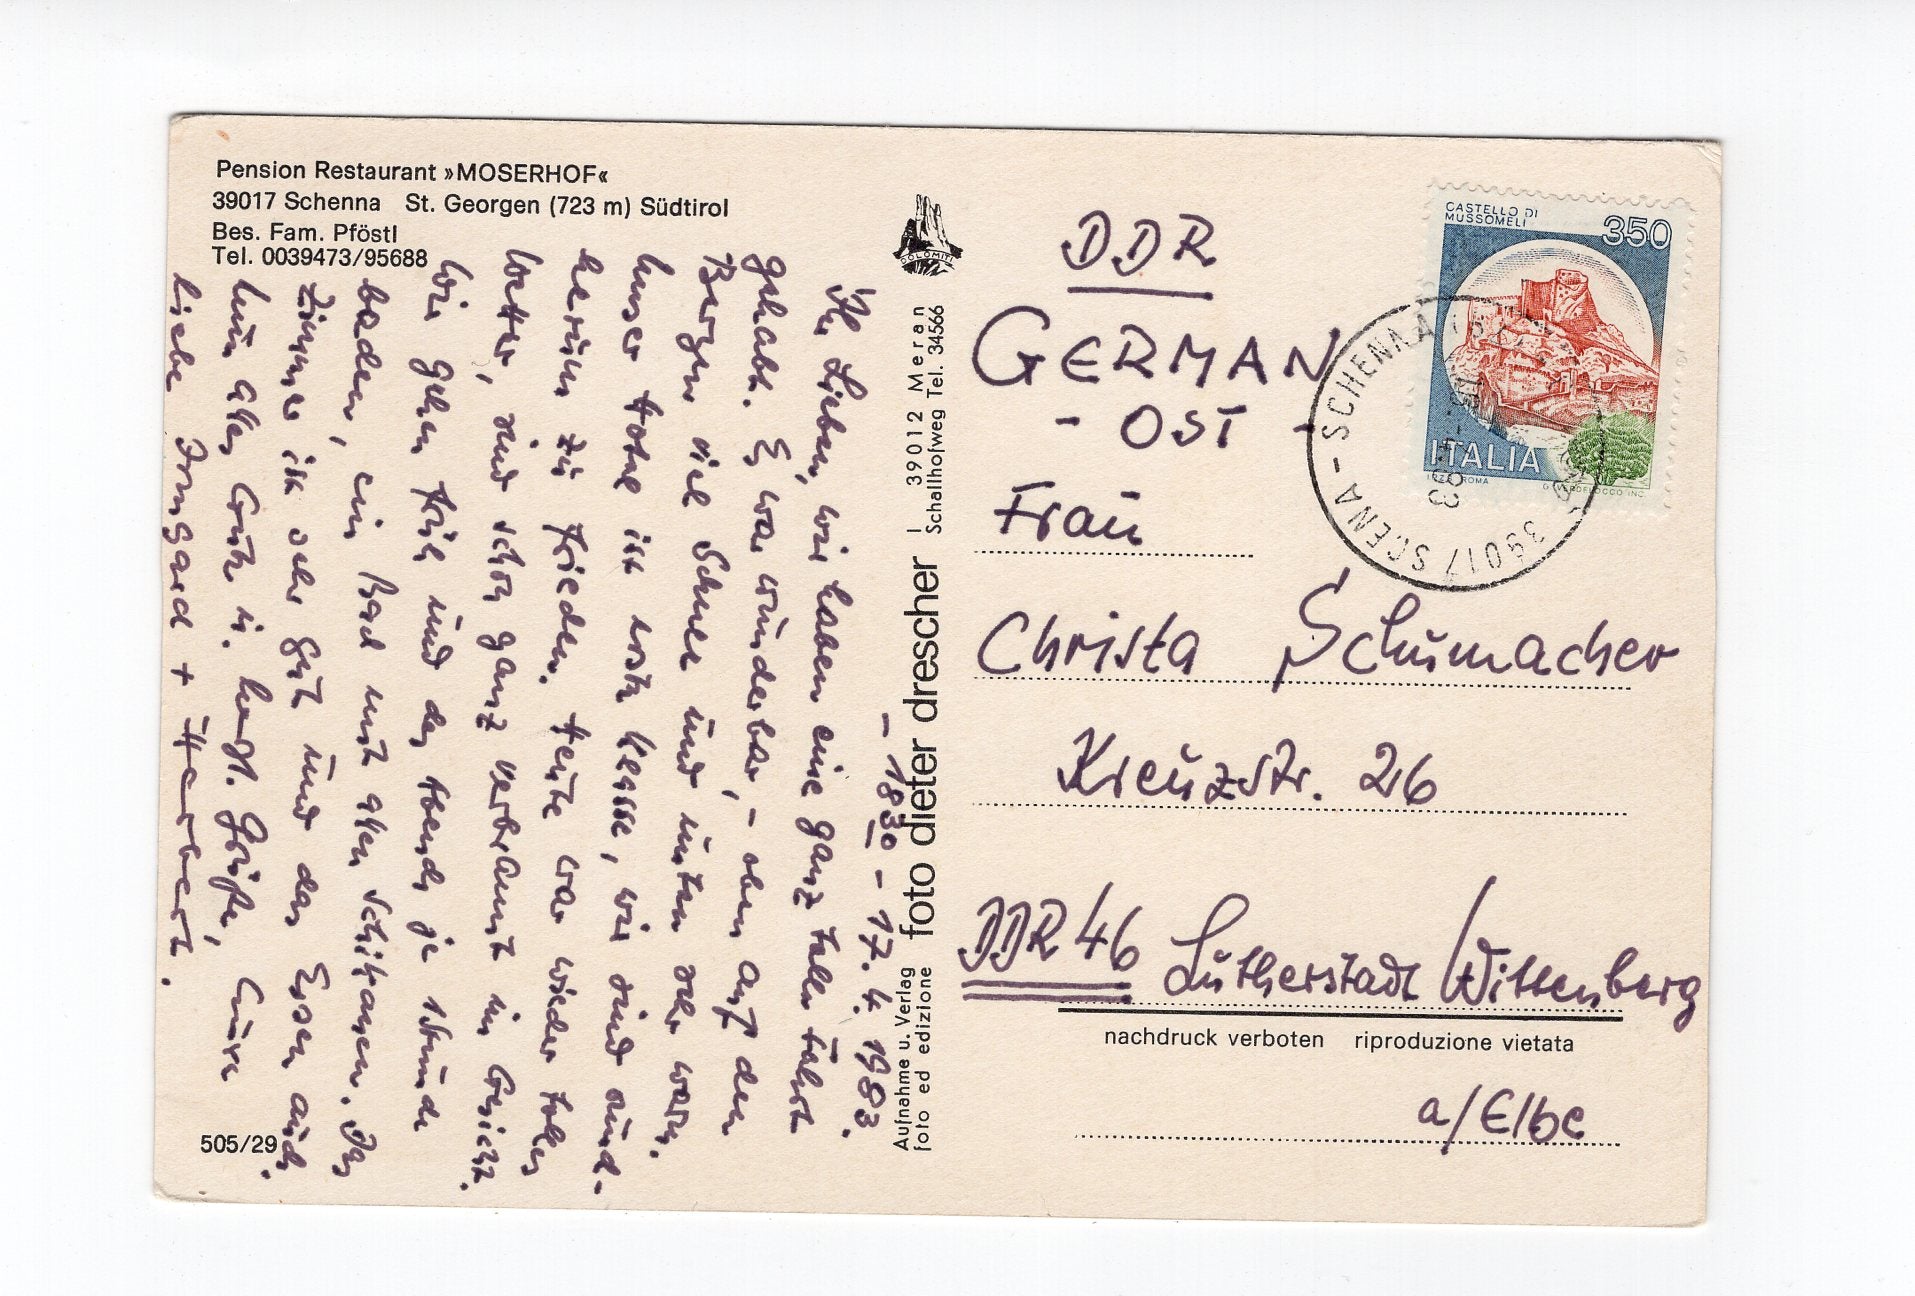 Pension Restaurant »MOSERHOF«
39017 Schenna St. Georgen (723 m) Südtirol
Bes. Fam. Pföstl
Tel. 0039473/95688
- 18³⁰ - 17.4.1983.
Ihr Lieben, wir haben eine ganz tolle Fahrt
gehabt. Es war wunderbar, - oben auf den
Bergen viel Schnee und unten sehr warm.
Unser Hotel ist erste Klasse, wir sind rund-
herum zu Frieden. Heute war wieder tolles
Wetter, sind schon ganz verbrannt im Gesicht.
Wir gehen früh und des Abends je 1 Stunde
baden, ein Bad mit allen Schikanen. Das
Zimmer ist sehr gut und das Essen auch.
Nun alles Gute u. herzl. Grüße, Eure
liebe Irmgard + Herbert.
505/29
DOLOMITI
Aufnahme u. Verlag foto dieter drescher I 39012 Meran
foto ed edizione Schallhofweg Tel. 34566
CASTELLO DI
MUSSOMELI
350
ITALIA
I.P.Z.S. ROMA
39017 SCENA - SCHENNA
DDR
GERMAN
- OST -
Frau
Christa Schumacher
Kreuzstr. 26
DDR 46 Lutherstadt Wittenberg
nachdruck verboten riproduzione vietata
a/Elbe